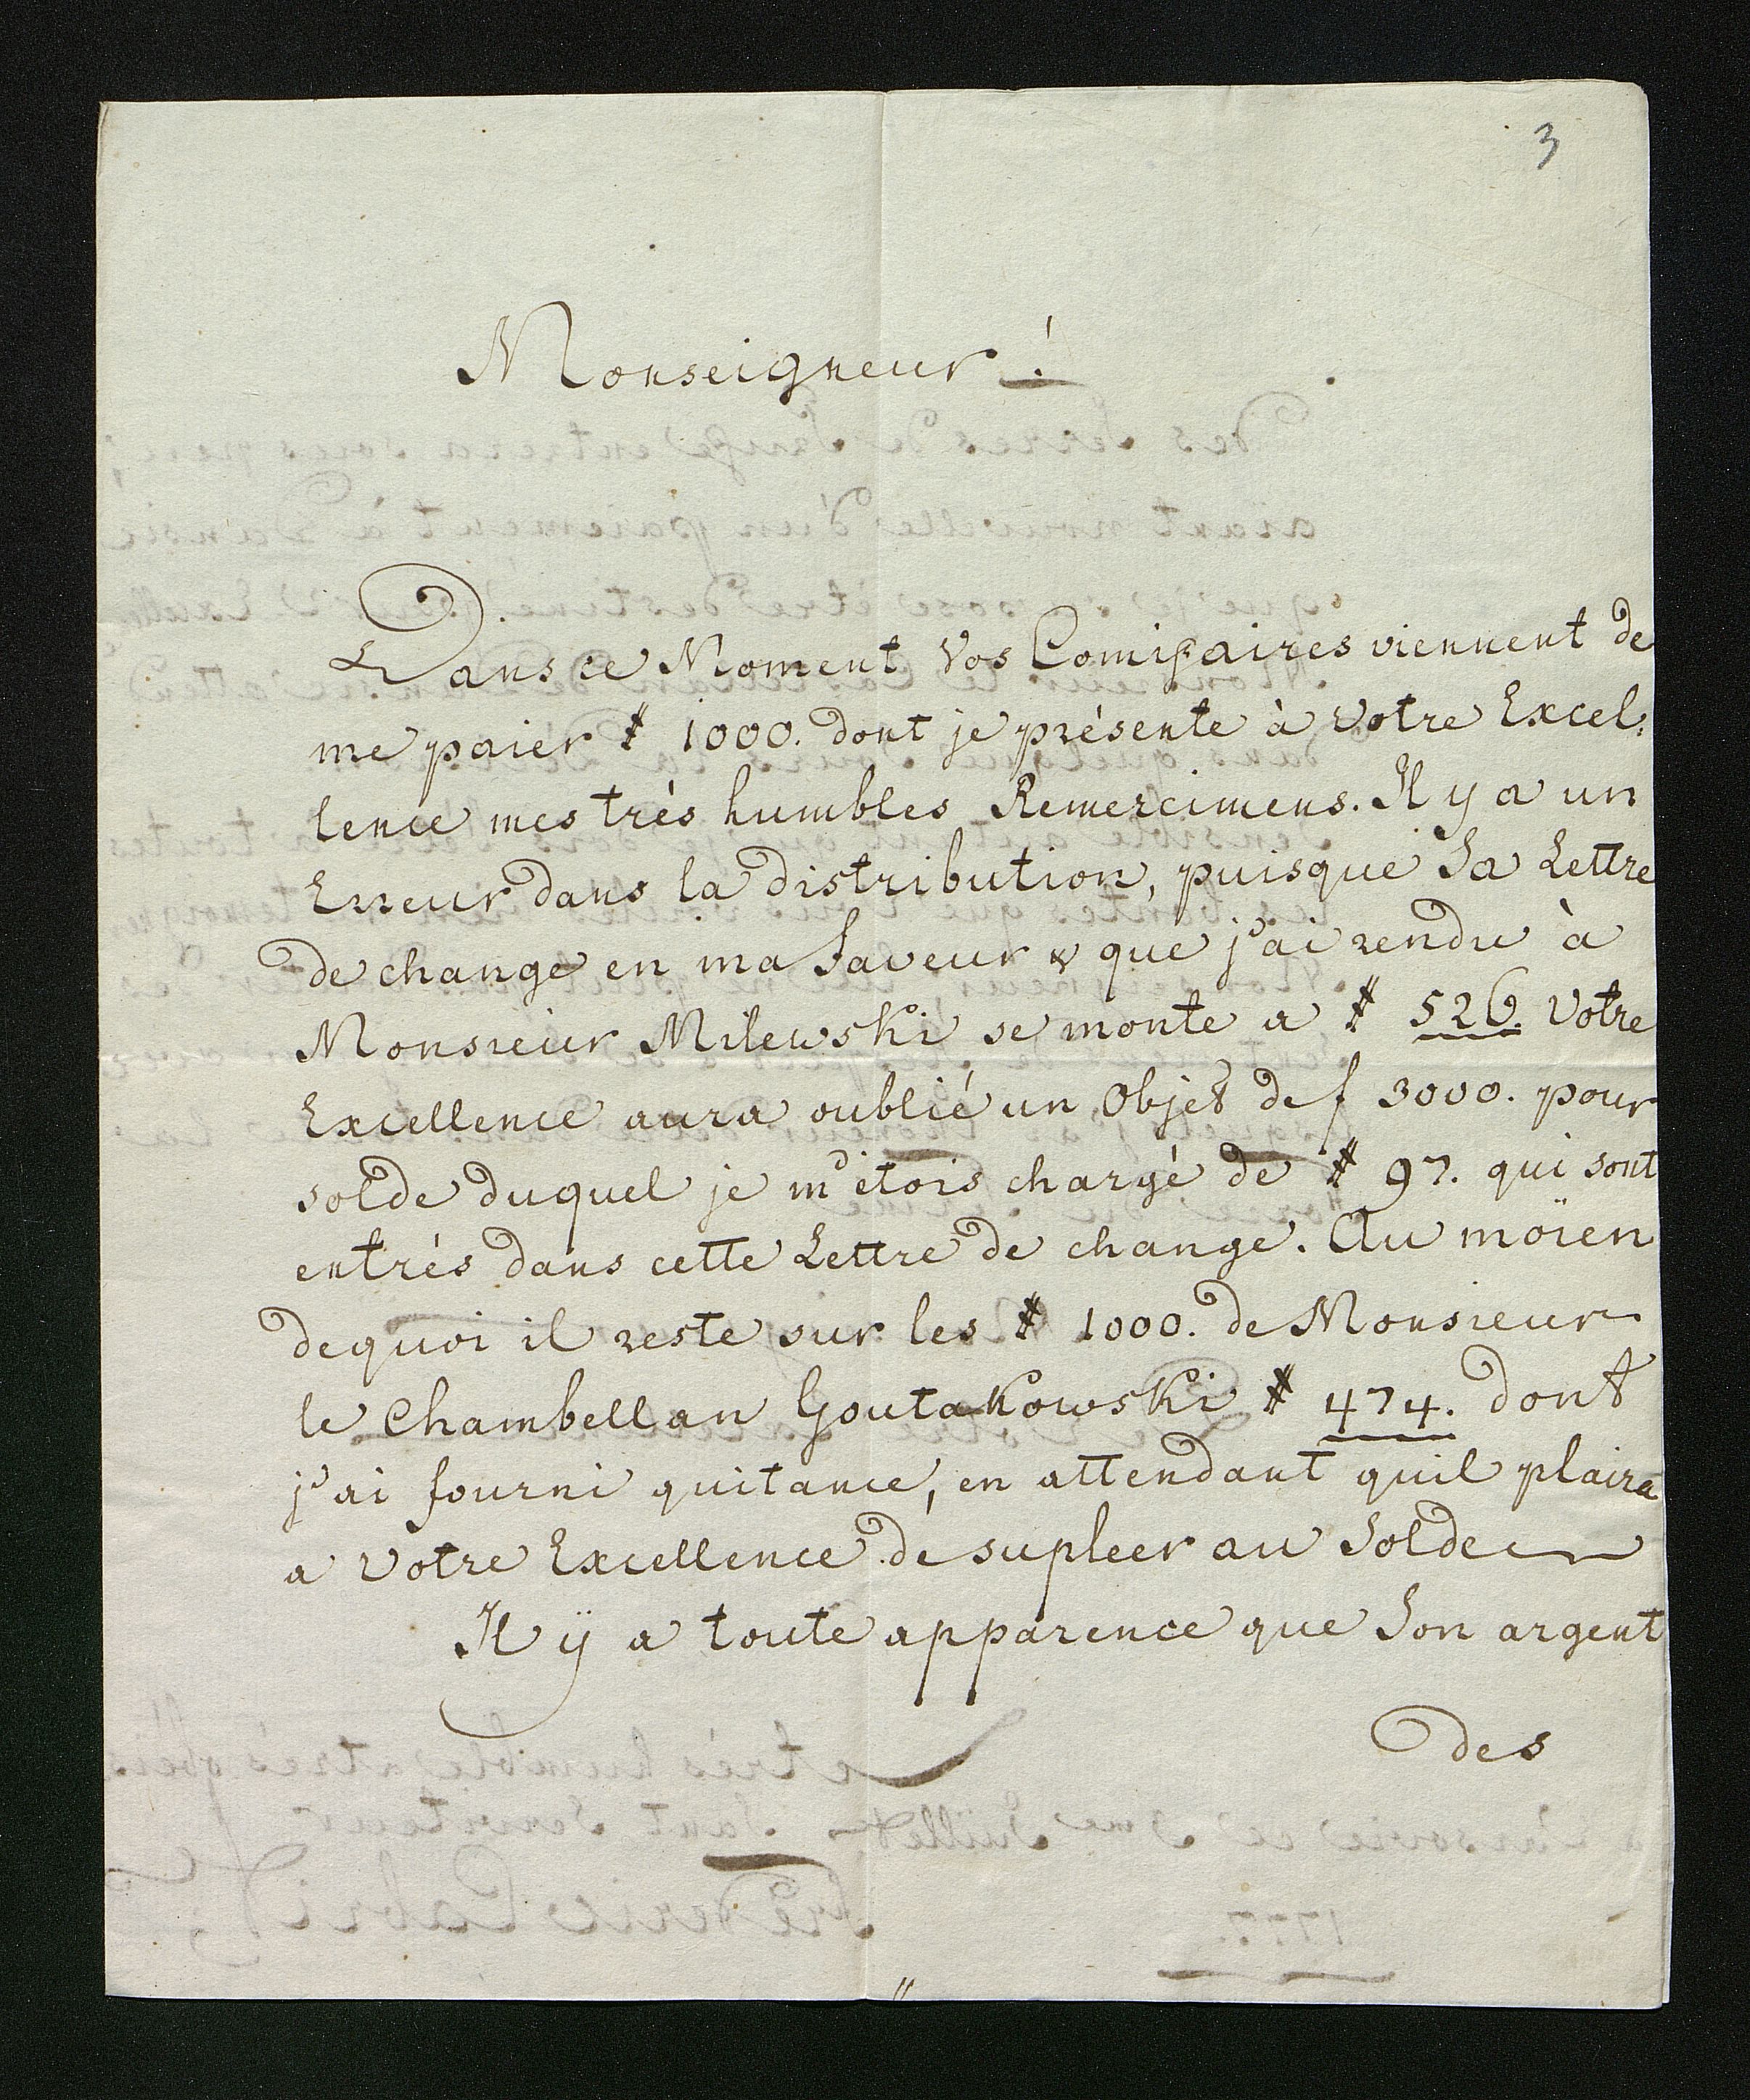 3
Monseigneur !
Dans ce Moment Vos Comissaires viennent de
me paier # 1000. dont je présente à votre Excel,
lence mes très humbles Remercimens. Il y a un
Erreur dans la distribution, puisque Sa Lettre
de change en ma faveur & que j'ai rendu à
Monsieur Milewski se monte a # 526. Votre
Excellence aura oublié un Objet de f 3000. pour
solde duquel je m'étois chargé de # 97. qui sont
entrés dans cette Lettre de change. Au moïen
dequoi il reste sur les # 1000. de Monsieur
le Chambellan Goutakowski # 474. dont
j'ai fourni quitance, en attendant quil plaira
a Votre Excellence de supleer au Solde
Il ÿ a toute apparence que Son argent
des